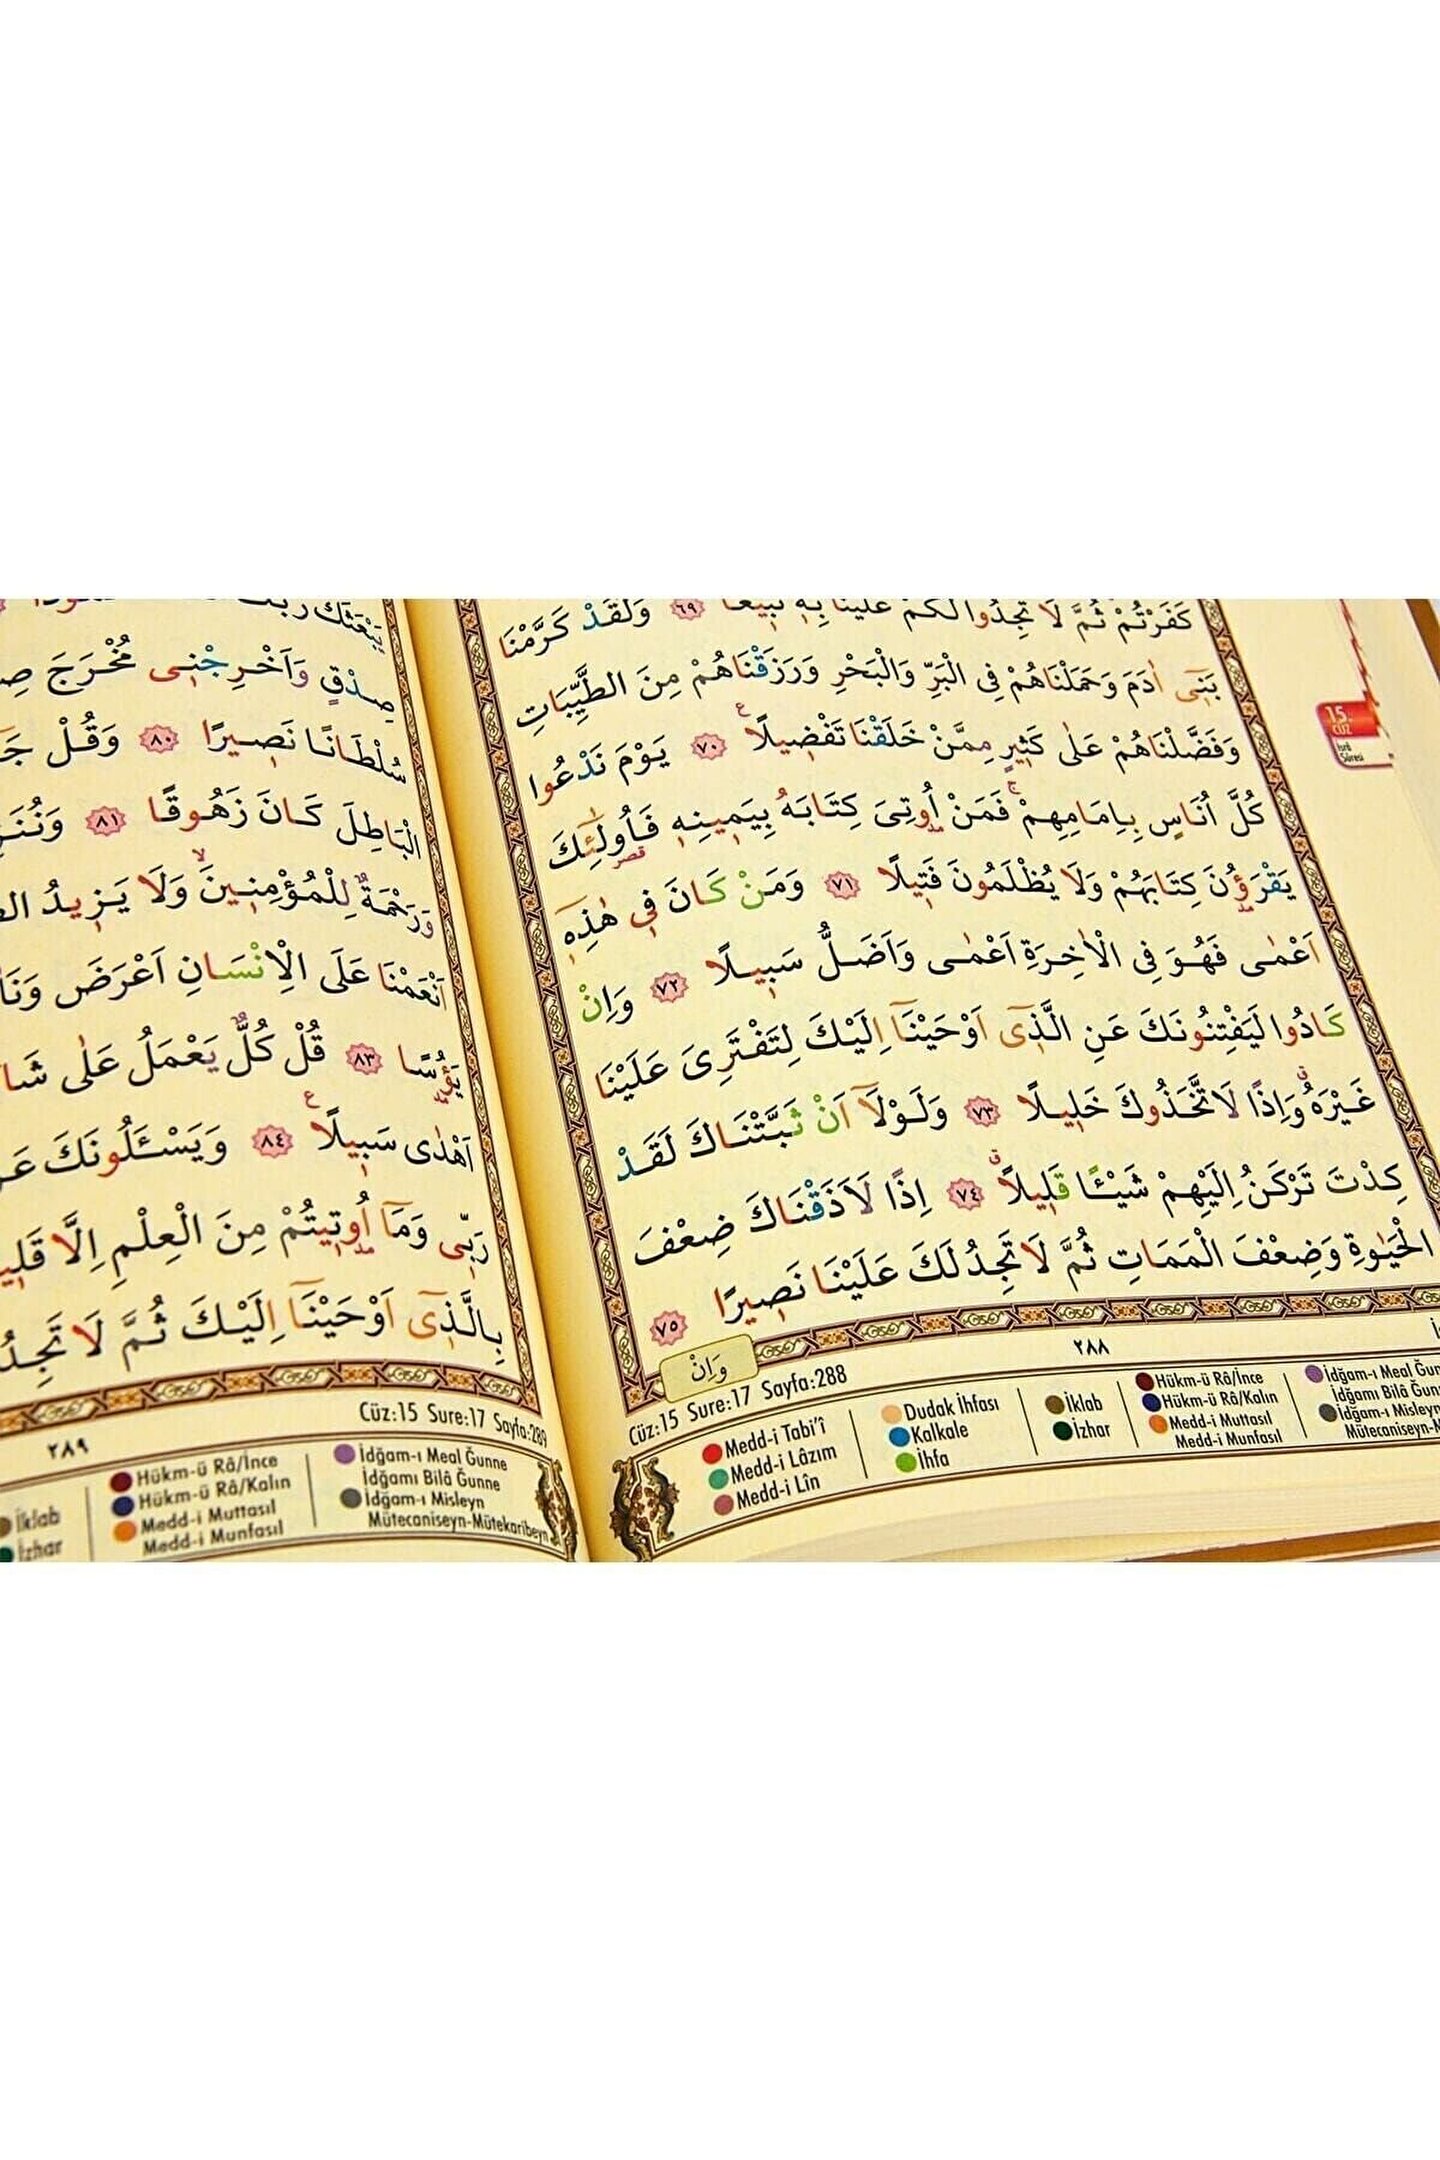 كَفَرْتُمْ ثُمَّ لَا تَجِدُوا لَكُمْ عَلَيْنَا بِهٖ تَبٖيعًا ﴿٦٩﴾ وَلَقَدْ كَرَّمْنَا
بَنٖٓى اٰدَمَ وَحَمَلْنَاهُمْ فِى الْبَرِّ وَالْبَحْرِ وَرَزَقْنَاهُمْ مِنَ الطَّيِّبَاتِ
وَفَضَّلْنَاهُمْ عَلٰى كَثٖيرٍ مِمَّنْ خَلَقْنَا تَفْضٖيلًا ع ﴿٧٠﴾ يَوْمَ نَدْعُوا
كُلَّ اُنَاسٍ بِاِمَامِهِمْ ج فَمَنْ اُوتِىَ كِتَابَهُ بِيَمٖينِهٖ فَاُولٰٓئِكَ
يَقْرَؤُنَ كِتَابَهُمْ وَلَا يُظْلَمُونَ فَتٖيلًا ﴿٧١﴾ وَمَنْ كَانَ فٖى هٰذِهٖٓ
اَعْمٰى فَهُوَ فِى الْاٰخِرَةِ اَعْمٰى وَاَضَلُّ سَبٖيلًا ﴿٧٢﴾ وَاِنْ
كَادُوا لَيَفْتِنُونَكَ عَنِ الَّذٖٓى اَوْحَيْنَٓا اِلَيْكَ لِتَفْتَرِىَ عَلَيْنَا
غَيْرَهُ ق وَاِذًا لَاتَّخَذُوكَ خَلٖيلًا ﴿٧٣﴾ وَلَوْلَٓا اَنْ ثَبَّتْنَاكَ لَقَدْ
كِدْتَ تَرْكَنُ اِلَيْهِمْ شَيْـًٔا قَلٖيلًا ق ﴿٧٤﴾ اِذًا لَاَذَقْنَاكَ ضِعْفَ
الْحَيٰوةِ وَضِعْفَ الْمَمَاتِ ثُمَّ لَا تَجِدُ لَكَ عَلَيْنَا نَصٖيرًا ﴿٧٥﴾
وَاِنْ
٢٨٨
Cüz:15 Sure:17 Sayfa:288
Medd-i Tabi'î
Medd-i Lâzım
Medd-i Lîn
Dudak İhfası
Kalkale
İhfa
İklab
İzhar
Hükm-ü Râ/İnce
Hükm-ü Râ/Kalın
Medd-i Muttasıl
Medd-i Munfasıl
İdğam-ı Meal
İdğamı Bilâ
İdğam-ı Misleyn
15.
CÜZ
İsrâ
Sûresi
يَبْعَثَكَ رَبُّكَ
صِدْقٍ وَاَخْرِجْنٖى مُخْرَجَ
سُلْطَانًا نَصٖيرًا ﴿٨٠﴾ وَقُلْ
الْبَاطِلَ كَانَ زَهُوقًا ﴿٨١﴾
وَرَحْمَةٌ لِلْمُؤْمِنٖينَ لا وَلَا يَزٖيدُ
اَنْعَمْنَا عَلَى الْاِنْسَانِ اَعْرَضَ
يَؤُسًا ﴿٨٣﴾ قُلْ كُلٌّ يَعْمَلُ عَلٰى
اَهْدٰى سَبٖيلًا ع ﴿٨٤﴾ وَيَسْـَٔلُونَكَ
رَبّٖى وَمَٓا اُوتٖيتُمْ مِنَ الْعِلْمِ اِلَّا
بِالَّذٖٓى اَوْحَيْنَٓا اِلَيْكَ ثُمَّ لَا تَجِدُ
٢٨٩
Cüz:15 Sure:17 Sayfa:289
İklab
İzhar
Hükm-ü Râ/İnce
Hükm-ü Râ/Kalın
Medd-i Muttasıl
Medd-i Munfasıl
İdğam-ı Meal Ğunne
İdğamı Bilâ Ğunne
İdğam-ı Misleyn
Mütecaniseyn-Mütekaribeyn